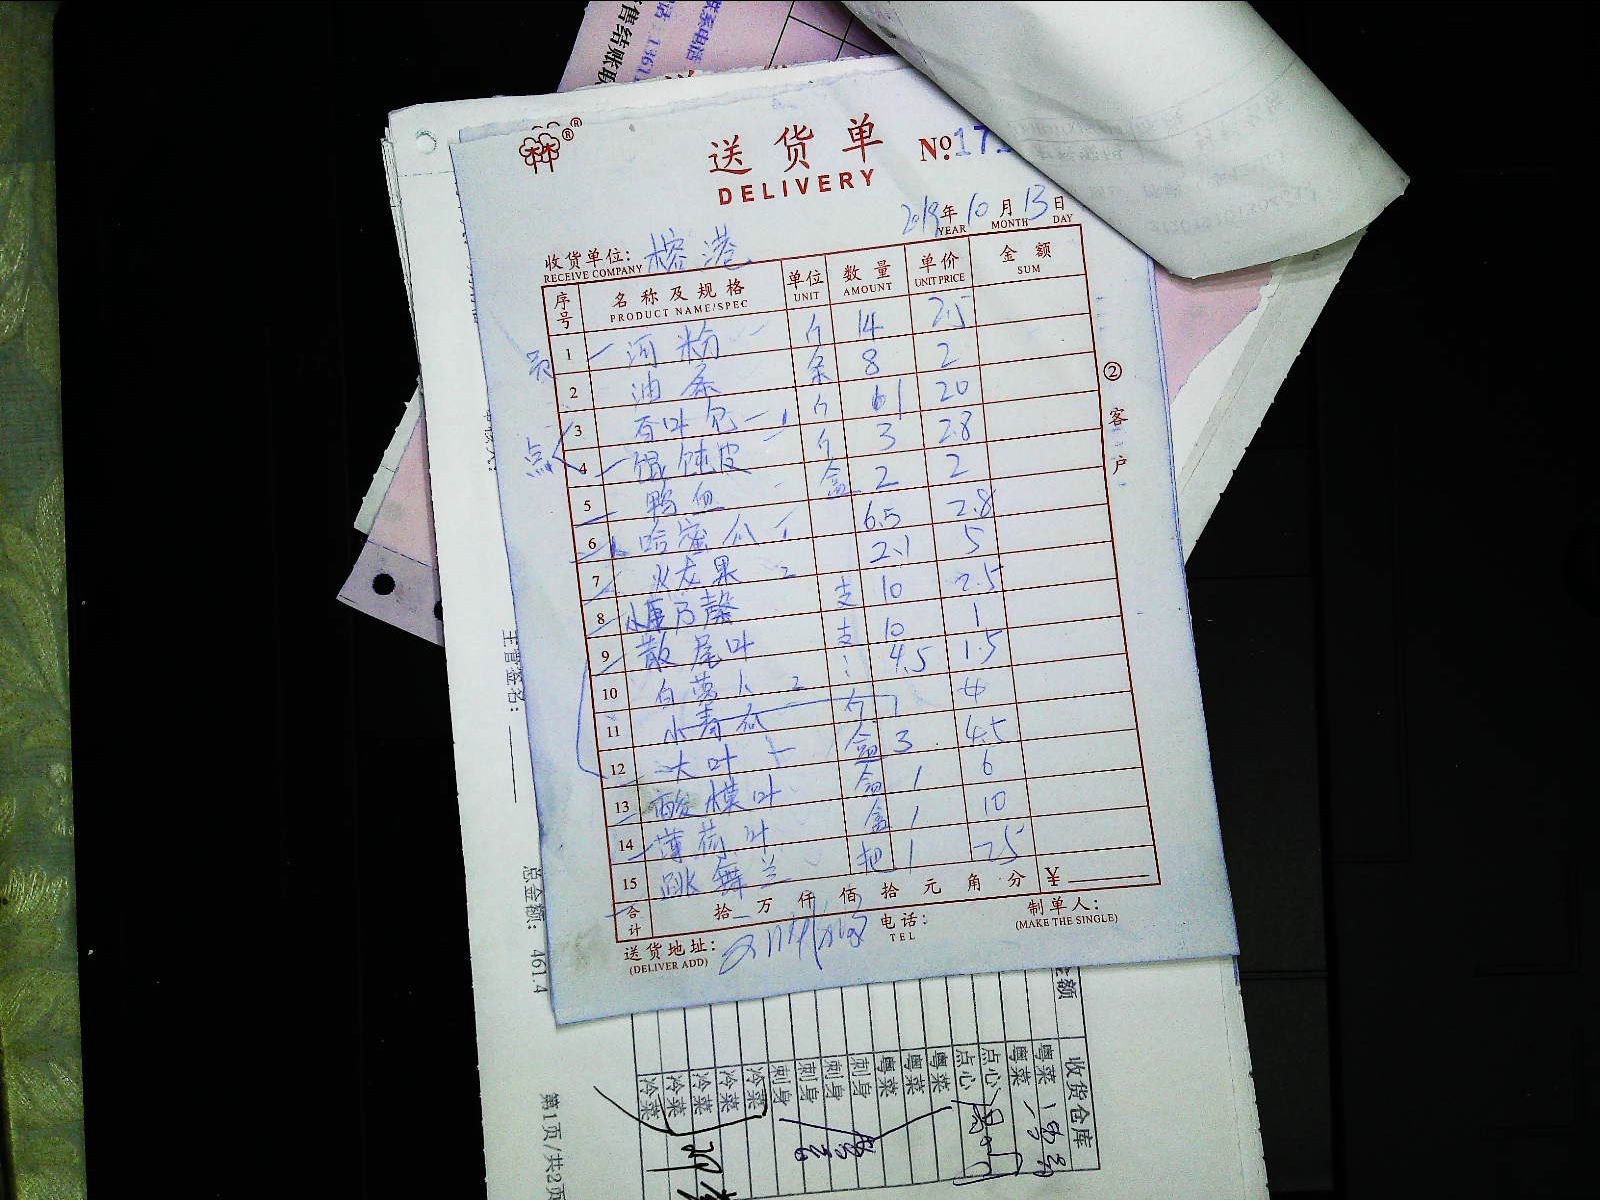 送货单
DELIVERY
№171
2019年10月13日
YEAR MONTH DAY
收货单位: 榕港
RECEIVE COMPANY
序号 名称及规格 单位 数量 单价 金额
PRODUCT NAME/SPEC UNIT AMOUNT UNIT PRICE SUM
1 河粉 斤 14 2.5
2 油条 条 8 2
3 香叶包 斤 20
4 馄饨皮 斤 3 2.8
5 鸭血 盒 2 2
6 哈密瓜 6.5 2.8
7 火龙果 2.1 5
8 支 10 2.5
9 散尾叶 支 10 1
10 白萝卜 4.5 1.5
11 小青瓜 4
12 大叶 盒 3 4.5
13 酸模叶 盒 1 6
14 薄荷叶 盒 1 10
15 跳舞兰 把 1 25
合计 拾 万 仟 佰 拾 元 角 分 ¥
送货地址:
(DELIVER ADD)
电话:
TEL
制单人:
(MAKE THE SINGLE)
② 客户
点
主管签名:
总金额: 461.4
第1页/共2页
金额
收货仓库
粤菜
粤菜
点心
点心
粤菜
粤菜
粤菜
刺身
刺身
刺身
刺身
冷菜
冷菜
冷菜
冷菜
冷菜